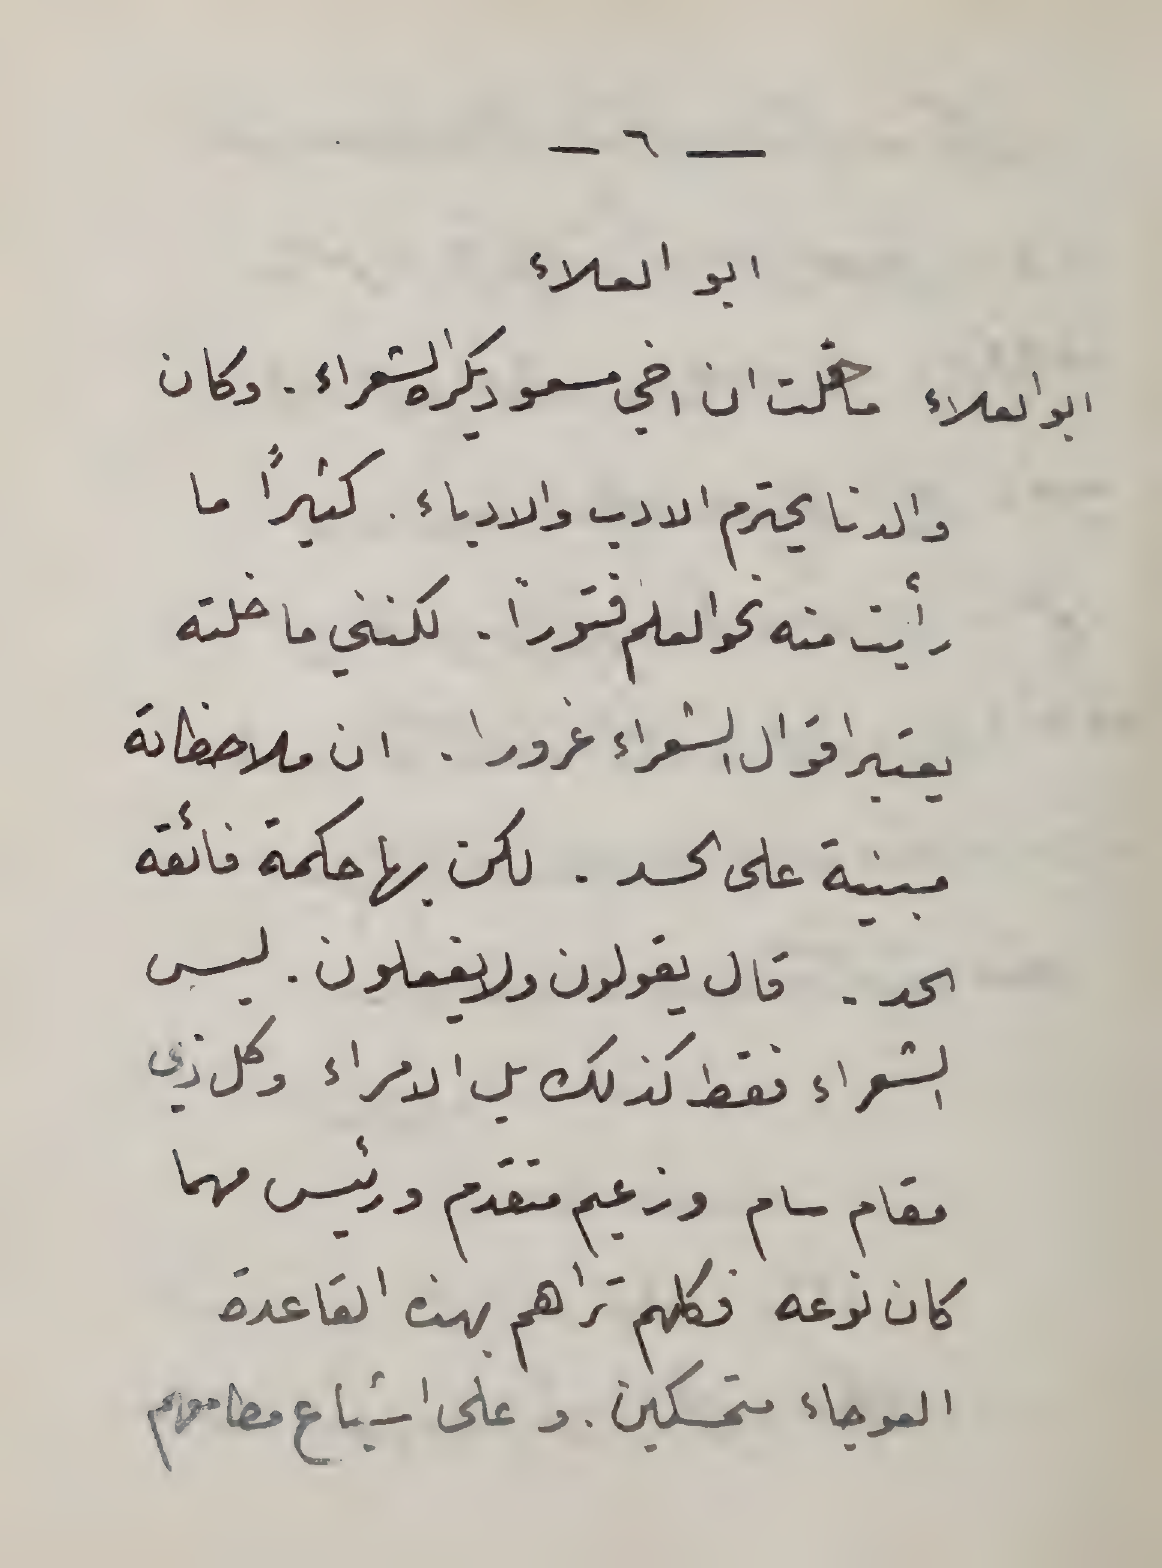 — ٦ —
ابو العلاء
ابو العلاء ما خلت ان اخي مسعود يكره الشعراء . وكان
والدنا يحترم الادب والادباء . كثيرًا ما
رأيت منه نحو العلم فتورا . لكنني ما خلته
يعتبر اقوال الشعراء غرورا . ان ملاحظاته
مبنية على الحسد . لكن بها حكمة فائقة
الحد . قال يقولون ولا يفعلون . ليس
الشعراء فقط كذلك بل الامراء وكل ذي
مقام سام وزعيم متقدم ورئيس مهما
كان نوعه فكلهم تراهم بهذه القاعدة
العوجاء متمسكين . و على اشباع مطامعهم